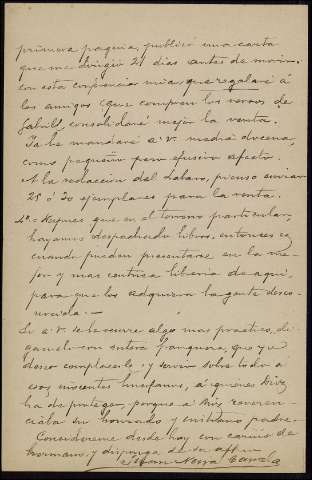 primera pagina, publicó una carta
que me dirigió 21 dias antes de morir.
con esta esperiencia mia, que regalaré á
los amigos que compren los versos de
Gabriel, consolidaré mejor la venta.
Ya le mandaré a V. media docena,
como pequeño pero efusivo afecto.
A la redaccion del Lábaro, pienso enviar
25 ó 30 ejemplares para la venta.
4º = Despues que en el terreno particular,
hayamos despachado libros, entonces es
cuando pueden presentarse en la me-
jor y mas centrica libreria de aqui,
para que los adquiera la gente desco-
nocida. —
Si a V. se le ocurre algo mas práctico, di-
gamelo con entera franqueza, que yo
deseo complacerle, y servir sobre todo á
esos inocentes huerfanos, á quienes Dios
ha de proteger, porque á Dios reveren-
ciaba su honrado y cristiano padre.
Considereme desde hoy con cariño de
hermano, y disponga de su aff.